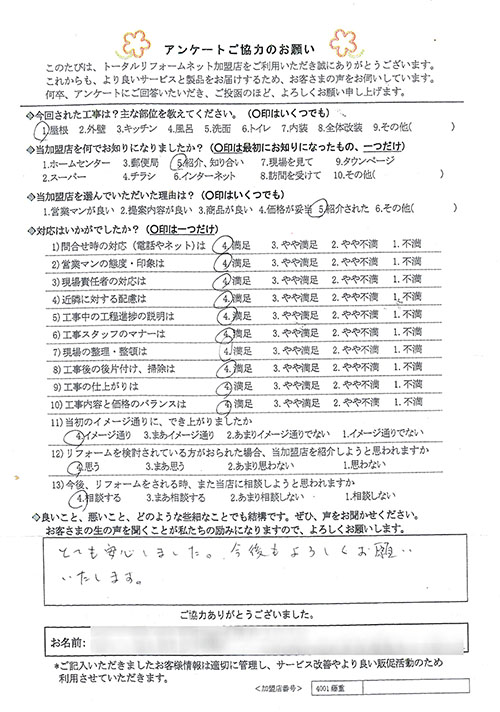 アンケートご協力のお願い
このたびは、トータルリフォームネット加盟店をご利用いただき誠にありがとうございます。
これからも、より良いサービスと製品をお届けするため、お客さまの声をお伺いしています。
何卒、アンケートにご回答いただいき、ご投函のほど、よろしくお願い申し上げます。
◆今回された工事は？主な部位を教えてください。（〇印はいくつでも）
1.屋根 2.外壁 3.キッチン 4.風呂 5.洗面 6.トイレ 7.内装 8.全体改装 9.その他( )
◆当加盟店を何でお知りになりましたか？（〇印は最初にお知りになったもの、一つだけ）
1.ホームセンター 3.郵便局 5.紹介、知り合い 7.現場を見て 9.タウンページ
2.スーパー 4.チラシ 6.インターネット 8.訪問を受けて 10.その他( )
◆当加盟店を選んでいただいた理由は？（〇印はいくつでも）
1.営業マンが良い 2.提案内容が良い 3.商品が良い 4.価格が妥当 5.紹介された 6.その他( )
◆対応はいかがでしたか？（〇印は一つだけ）
1)問合せ時の対応（電話やネット)は 4.満足 3.やや満足 2.やや不満 1.不満
2)営業マンの態度・印象は 4.満足 3.やや満足 2.やや不満 1.不満
3)現場責任者の対応は 4.満足 3.やや満足 2.やや不満 1.不満
4)近隣に対する配慮は 4.満足 3.やや満足 2.やや不満 1.不満
5)工事中の工程進捗の説明は 4.満足 3.やや満足 2.やや不満 1.不満
6)工事スタッフのマナーは 4.満足 3.やや満足 2.やや不満 1.不満
7)現場の整理・整頓は 4.満足 3.やや満足 2.やや不満 1.不満
8)工事後の後片付け、掃除は 4.満足 3.やや満足 2.やや不満 1.不満
9)工事の仕上がりは 4.満足 3.やや満足 2.やや不満 1.不満
10)工事内容と価格のバランスは 4.満足 3.やや満足 2.やや不満 1.不満
11)当初のイメージ通りに、でき上がりましたか
4.イメージ通り 3.まあイメージ通り 2.あまりイメージ通りでない 1.イメージ通りでない
12)リフォームを検討されている方がおられた場合、当加盟店を紹介しようと思われますか
4.思う 3.まあ思う 2.あまり思わない 1.思わない
13)今後、リフォームをされる時、また当店に相談しようと思われますか
4.相談する 3.まあ相談する 2.あまり相談しない 1.相談しない
◆良いこと、悪いこと、どのような些細なことでも結構です。ぜひ、声をお聞かせください。
お客さまの生の声を聞くことが私たちの励みになりますので、よろしくお願いします。
とても安心しました。今後もよろしくお願い
いたします。
ご協力ありがとうございました。
お名前:
*ご記入いただきましたお客様情報は適切に管理し、サービス改善やより良い販促活動のため
利用させていただきます。
<加盟店番号> 4001